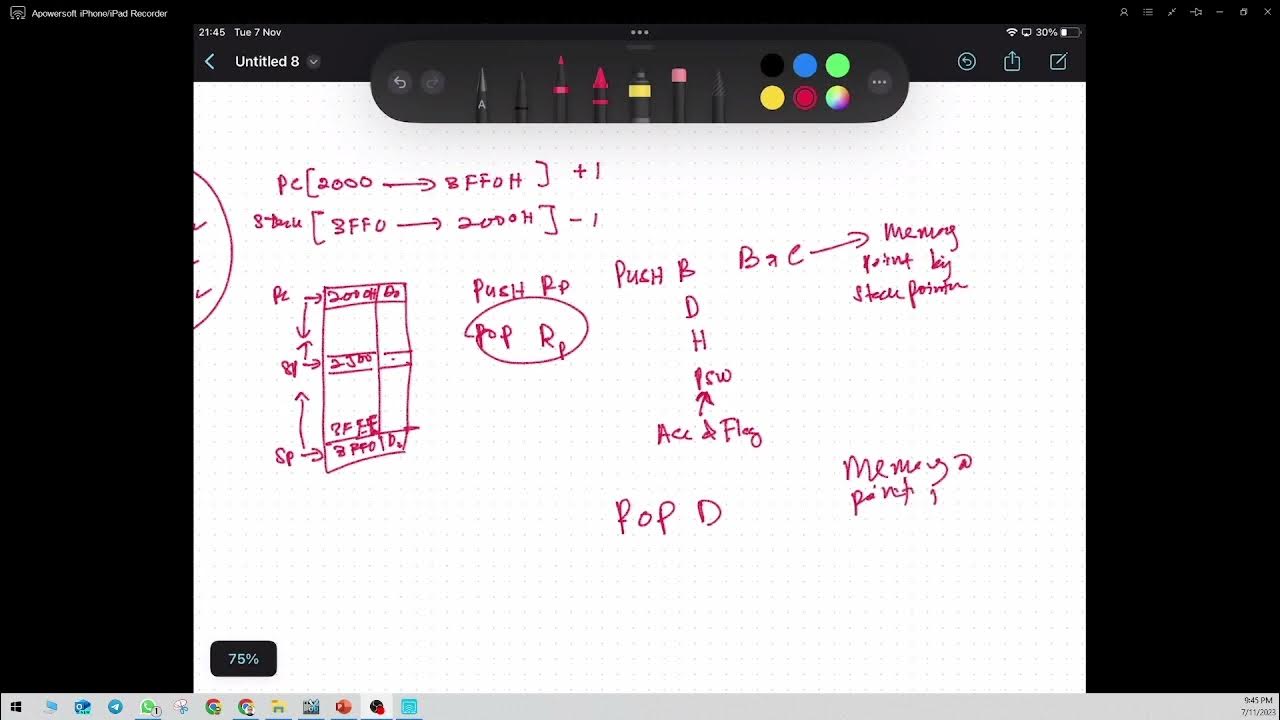 Apowersoft iPhone/iPad Recorder
21:45 Tue 7 Nov
30%
Untitled 8
A
PC [2000 → 3FF0H] +1
Stack [3FF0 → 2000H] -1
PC → 2000H D0
SP → 2500
3FFE
SP → 3FF0 D0
PUSH Rp
POP Rp
PUSH B
D
H
PSW
Acc & Flag
B & C → Memory
point by
stack pointer
POP D
Memory
point
75%
1
9:45 PM
7/11/2023